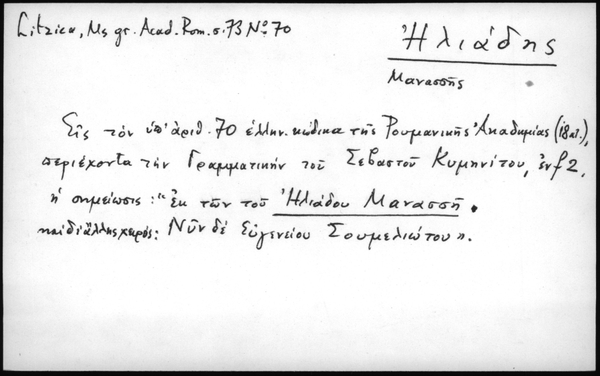 Litzica, Ms gr. Acad. Rom. σ. 73 Nº 70
Ἠλιάδης
Μανασσῆς
Εἰς τὸν ὑπ' ἀριθ. 70 ἑλλην. κώδικα τῆς Ρουμανικῆς Ἀκαδημίας (18 αἰ.),
περιέχοντα τὴν Γραμματικὴν τοῦ Σεβαστοῦ Κυμηνίτου, ἐν f 2,
ἡ σημείωσις: "Ἐκ τῶν τοῦ Ἠλιάδου Μανασσῆ.
καὶ δι' ἄλλης χειρός: Νῦν δὲ Εὐγενείου Σουμελιώτου".